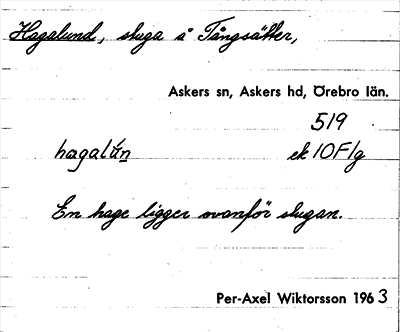 Hagalund, stuga å Tångsätter,
Askers sn, Askers hd, Örebro län.
519
hagalún ek 10F1g
En hage ligger ovanför stugan.
Per-Axel Wiktorsson 1963